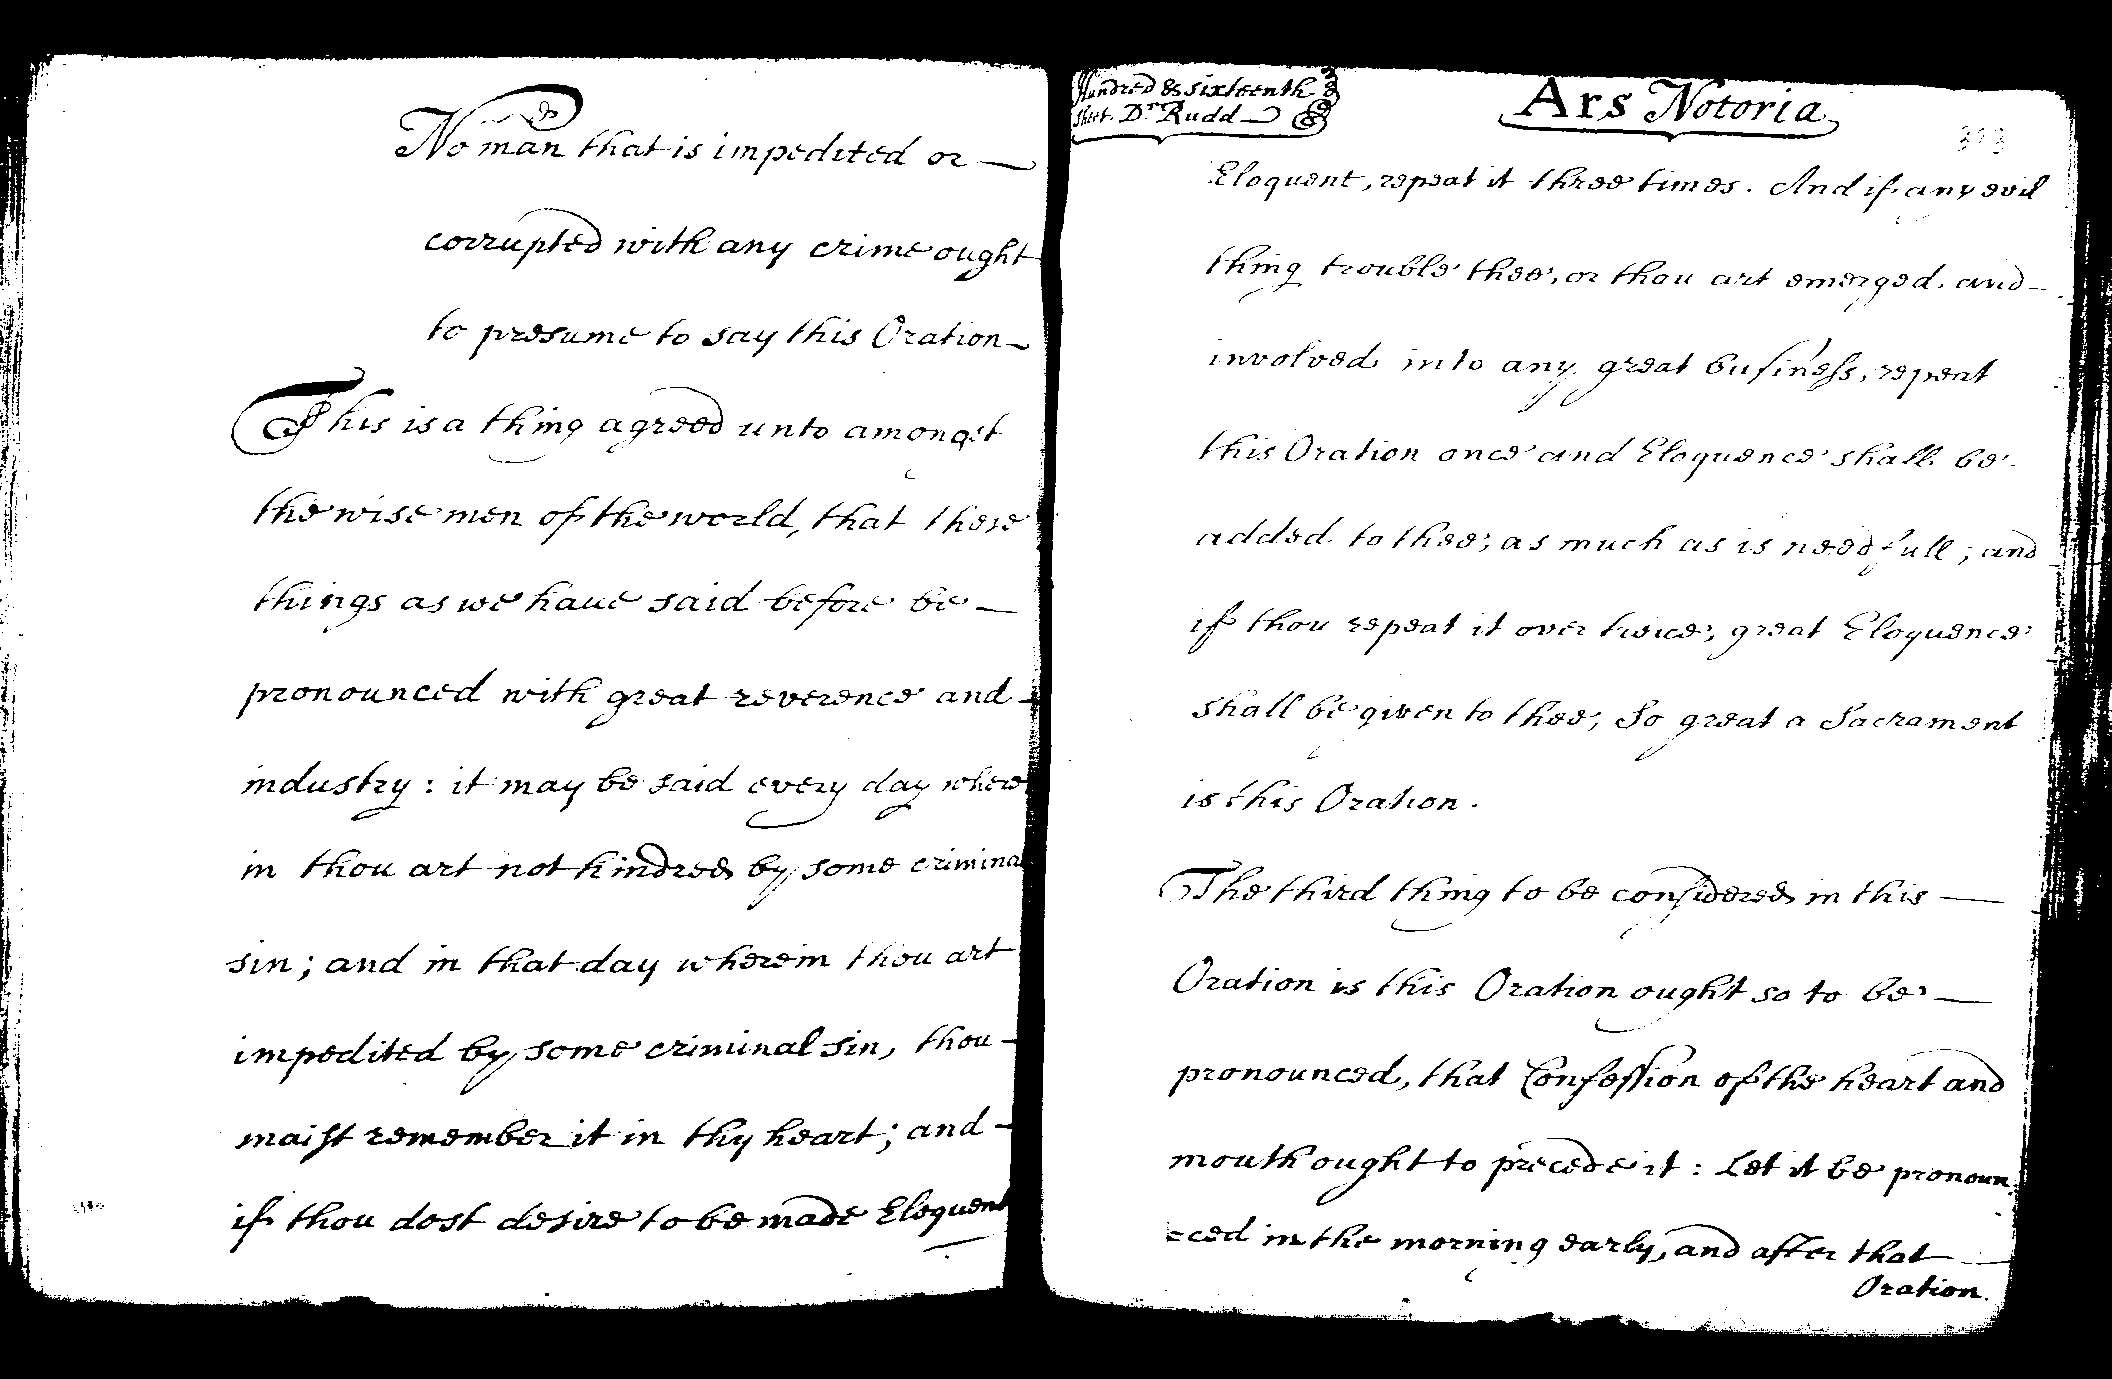 No man that is impedited or —
corrupted with any crime ought
to presume to say this Oration —
This is a thing agreed unto amongst
the wise men of the world, that these
things as we haue said before be —
pronounced with great reverence and —
industry : it may be said every day where
in thou art not hindred by some criminal
sin ; and in that day wherein thou art
impedited by some criminal sin, thou —
maist remember it in thy heart ; and —
if thou dost desire to be made Eloquent
Hundred & sixteenth
sheet. Dr Rudd —
Ars Notoria
Eloquent, repeat it three times. And if any evil
thing trouble thee, or thou art emerged and —
involved into any great business, repeat
this Oration once and Eloquence shall be
added to thee, as much as is needfull ; and
if thou repeat it over twice, great Eloquence
shall be given to thee, So great a Sacrament
is this Oration.
The third thing to be considered in this —
Oration is this Oration ought so to be —
pronounced, that Confession of the heart and
mouth ought to precede it : Let it be pronoun
=ced in the morning early, and after that —
Oration.